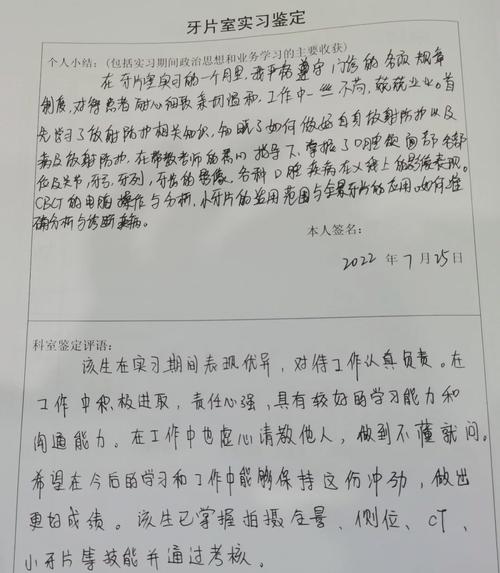 牙片室实习鉴定
个人小结：(包括实习期间政治思想和业务学习的主要收获)
在牙片室实习的一个月里，我严格遵守门诊的各项规章
制度，对待患者耐心细致亲切温和，工作中一丝不苟，兢兢业业。首
先学习了放射防护相关知识，知晓了如何做好自身放射防护以及
病人放射防护，在带教老师的悉心指导下，掌握了口腔颌面部
位及关节，牙弓，牙列，牙齿的影像，各科口腔疾病在X线上的影像表现。
CBCT的电脑操作与分析，小牙片的适用范围与全景牙片的应用。如何准
确分析与诊断疾病。
本人签名：
2022 年 7 月 25 日
科室鉴定评语：
该生在实习期间表现优异，对待工作认真负责。在
工作中积极进取，责任心强，具有较好的学习能力和
沟通能力。在工作中也虚心请教他人，做到不懂就问。
希望在今后的学习和工作中能够保持这份冲劲，做出
更好成绩。该生已掌握拍摄全景、侧位、CT、
小牙片等技能并通过考核。